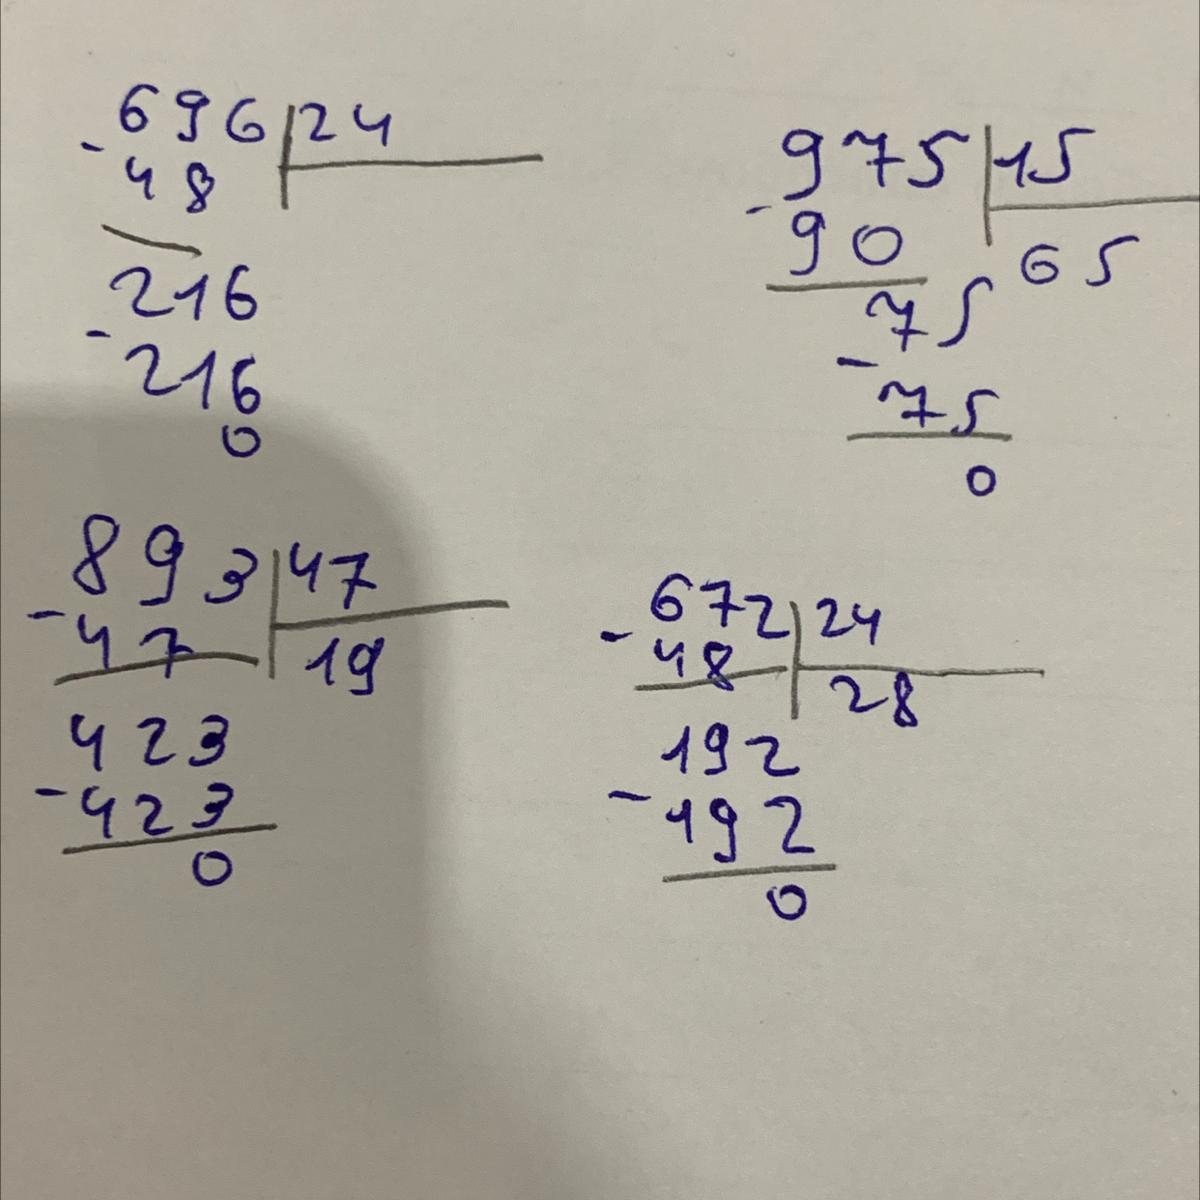 696 24
- 48
216
- 216
0
975 15
- 90 65
75
- 75
0
893 47
- 47 19
423
- 423
0
672 24
- 48 28
192
- 192
0